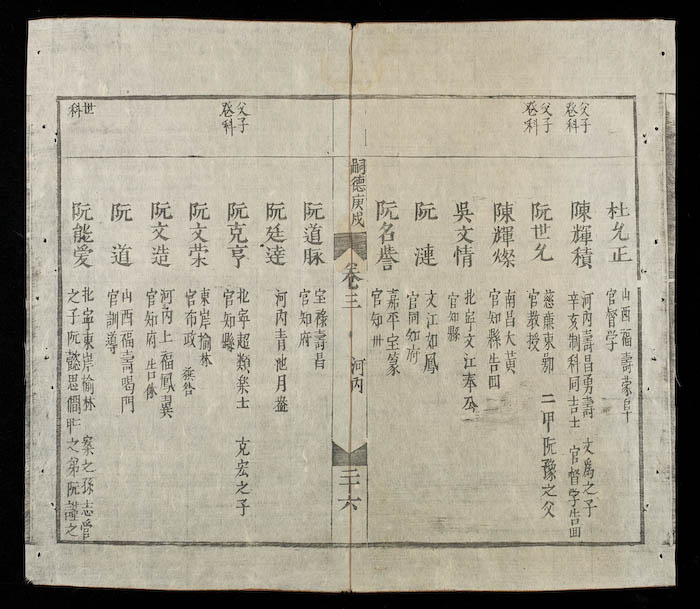 父子
登科
杜允正
山西福壽蒙阜
官督學
父子
登科
陳輝積
河內壽昌勇壽 文為之子
辛亥制科同吉士 官督学告回
阮世允
慈廉東鄂 二甲阮豫之父
官教授
陳輝燦
南昌大黄
官知縣告回
吳文情
北寧文江奉公
官知縣
阮漣
文江如鳳
官同知府
阮名譽
嘉平宝篆
官知州
嗣德庚戌
卷三
河内
二十六
阮道脉
宝祿壽昌
官知府
阮廷達
河內青池月盎
父子
登科
阮克亨
北寧超類 士 克宏之子
官知縣
阮文荣
東岸榆林
官布政
阮文造
河內上福鳳翼
官知府 告休
阮道
山西福壽喝門
官訓導
世
科
阮能爱
北寧東岸榆林 案之孫志管
之子阮懿 之弟阮 之